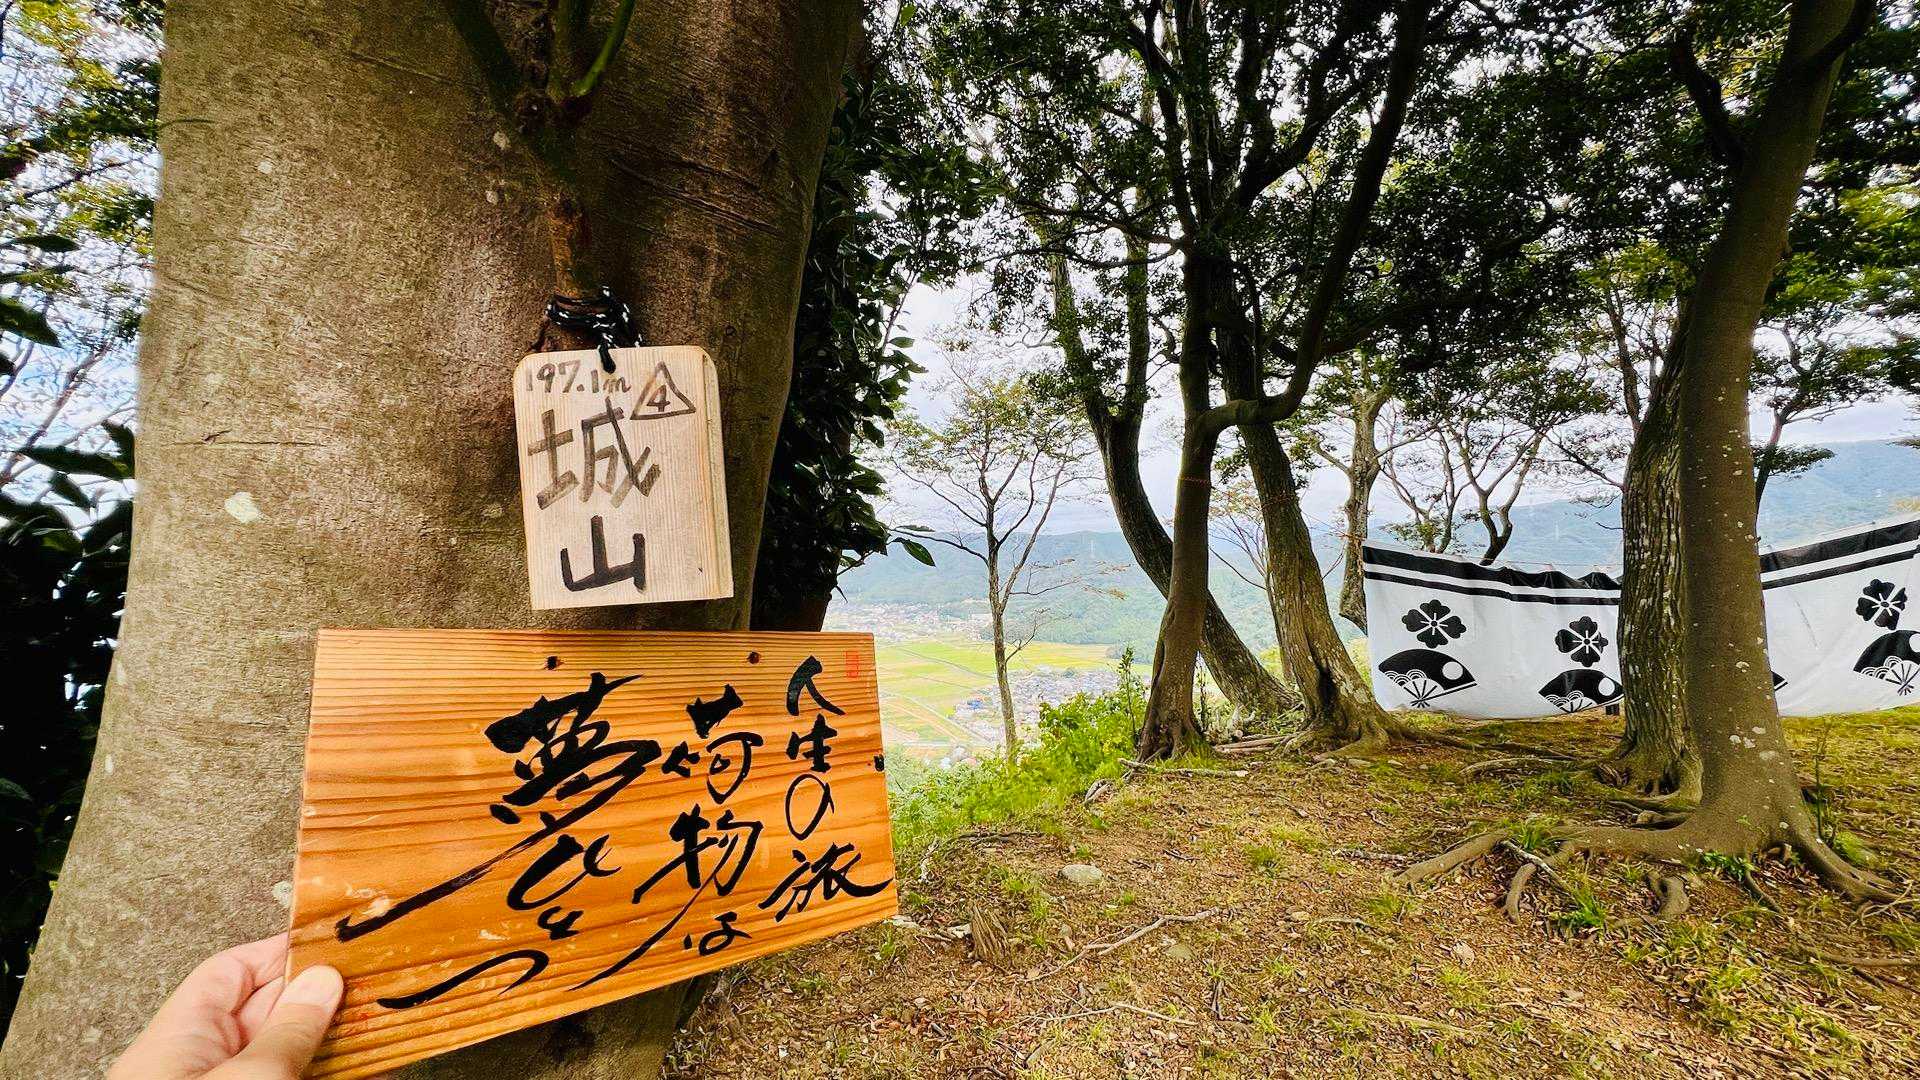 197.1m
4
城山
人生の旅
荷物は
夢ひとつ